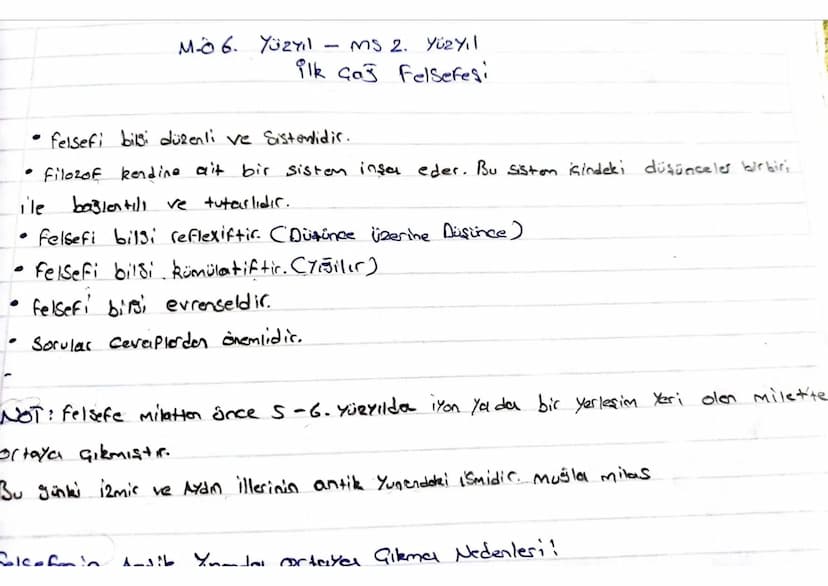 M.Ö 6. Yüzyıl – MS 2. Yüzyıl
İlk Çağ Felsefesi
• Felsefi bilgi düzenli ve sistemlidir.
• Filozof kendine ait bir sistem inşa eder. Bu sistem içindeki düşünceler birbiri
ile bağlantılı ve tutarlıdır.
• Felsefi bilgi reflexiftir. (Düşünce üzerine Düşünce)
• Felsefi bilgi kümülatiftir. (Yığılır)
• Felsefi bilgi evrenseldir.
• Sorular cevaplardan önemlidir.
NOT: Felsefe milattan önce 5-6. yüzyılda iyon ya da bir yerleşim yeri olan milet'te
ortaya çıkmıştır.
Bu günki izmir ve Aydın illerinin antik Yunandaki ismidir. muğla milas
Felsefenin Antik Yunanda ortaya Çıkma Nedenleri!